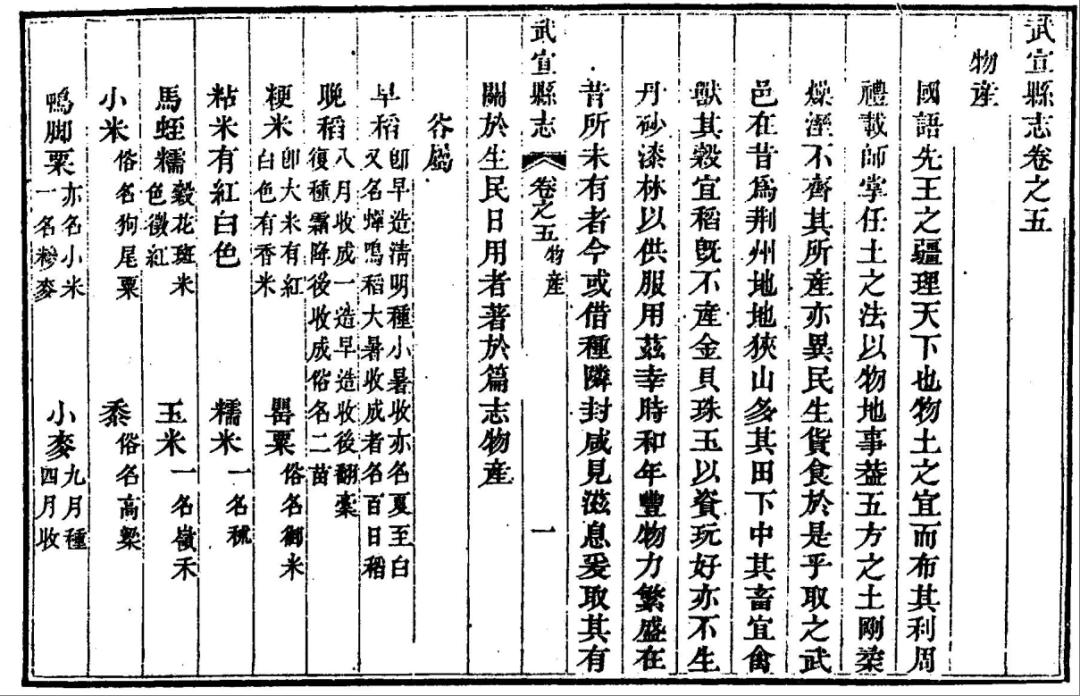 武宣縣志卷之五
物産
國語先王之疆理天下也物土之宜而布其利周
禮載師掌任土之法以物地事葢五方之土剛柔
燥溼不齊其所産亦異民生貨食於是乎取之武
邑在昔爲荆州地地狹山多其田下中其畜宜禽
獸其穀宜稻旣不産金貝珠玉以資玩好亦不生
丹砂漆林以供服用茲幸時和年豐物力繁盛在
昔所未有者今或借種隣封咸見滋息爰取其有
武宣縣志 卷之五 物産 一
關於生民日用者著於篇志物産
谷屬
早稻 卽早造淸明種小暑收亦名夏至白
又名蟬鳴稻大暑收成者名百日稻
晚稻 八月收成一造早造收後翻藁
復種霜降後收成俗名二苗
粳米 卽大米有紅
白色有香米
罌粟 俗名御米
粘米有紅白色
糯米 一名秫
馬蛭糯 穀花斑米
色微紅
玉米 一名嶺禾
小米 俗名狗尾粟
黍 俗名高粱
鴨脚粟 亦名小米
一名穇麥
小麥 九月種
四月收